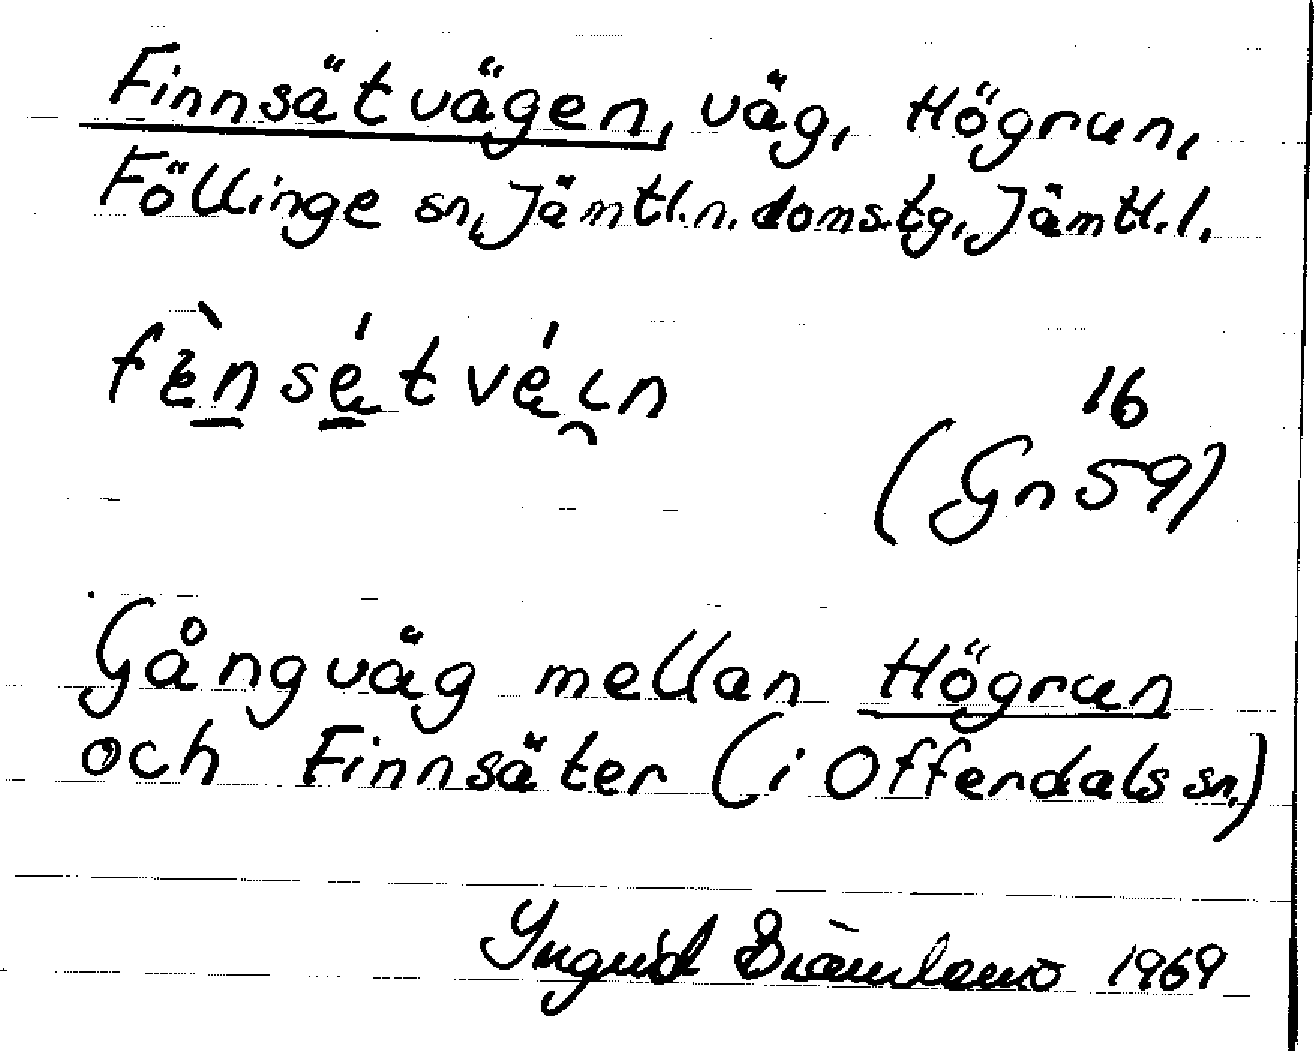 Finnsätvägen, väg, Högrun,
Föllinge sn, Jämtl.n.doms.tg, Jämtl.l.
fènsétvéin
16
(Gn 59)
Gångväg mellan Högrun
och Finnsäter (i Offerdals sn.)
Yngrid 1969